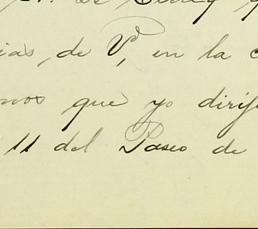 ias, de V, en la
nos que yo dirij
11 del Paseo de